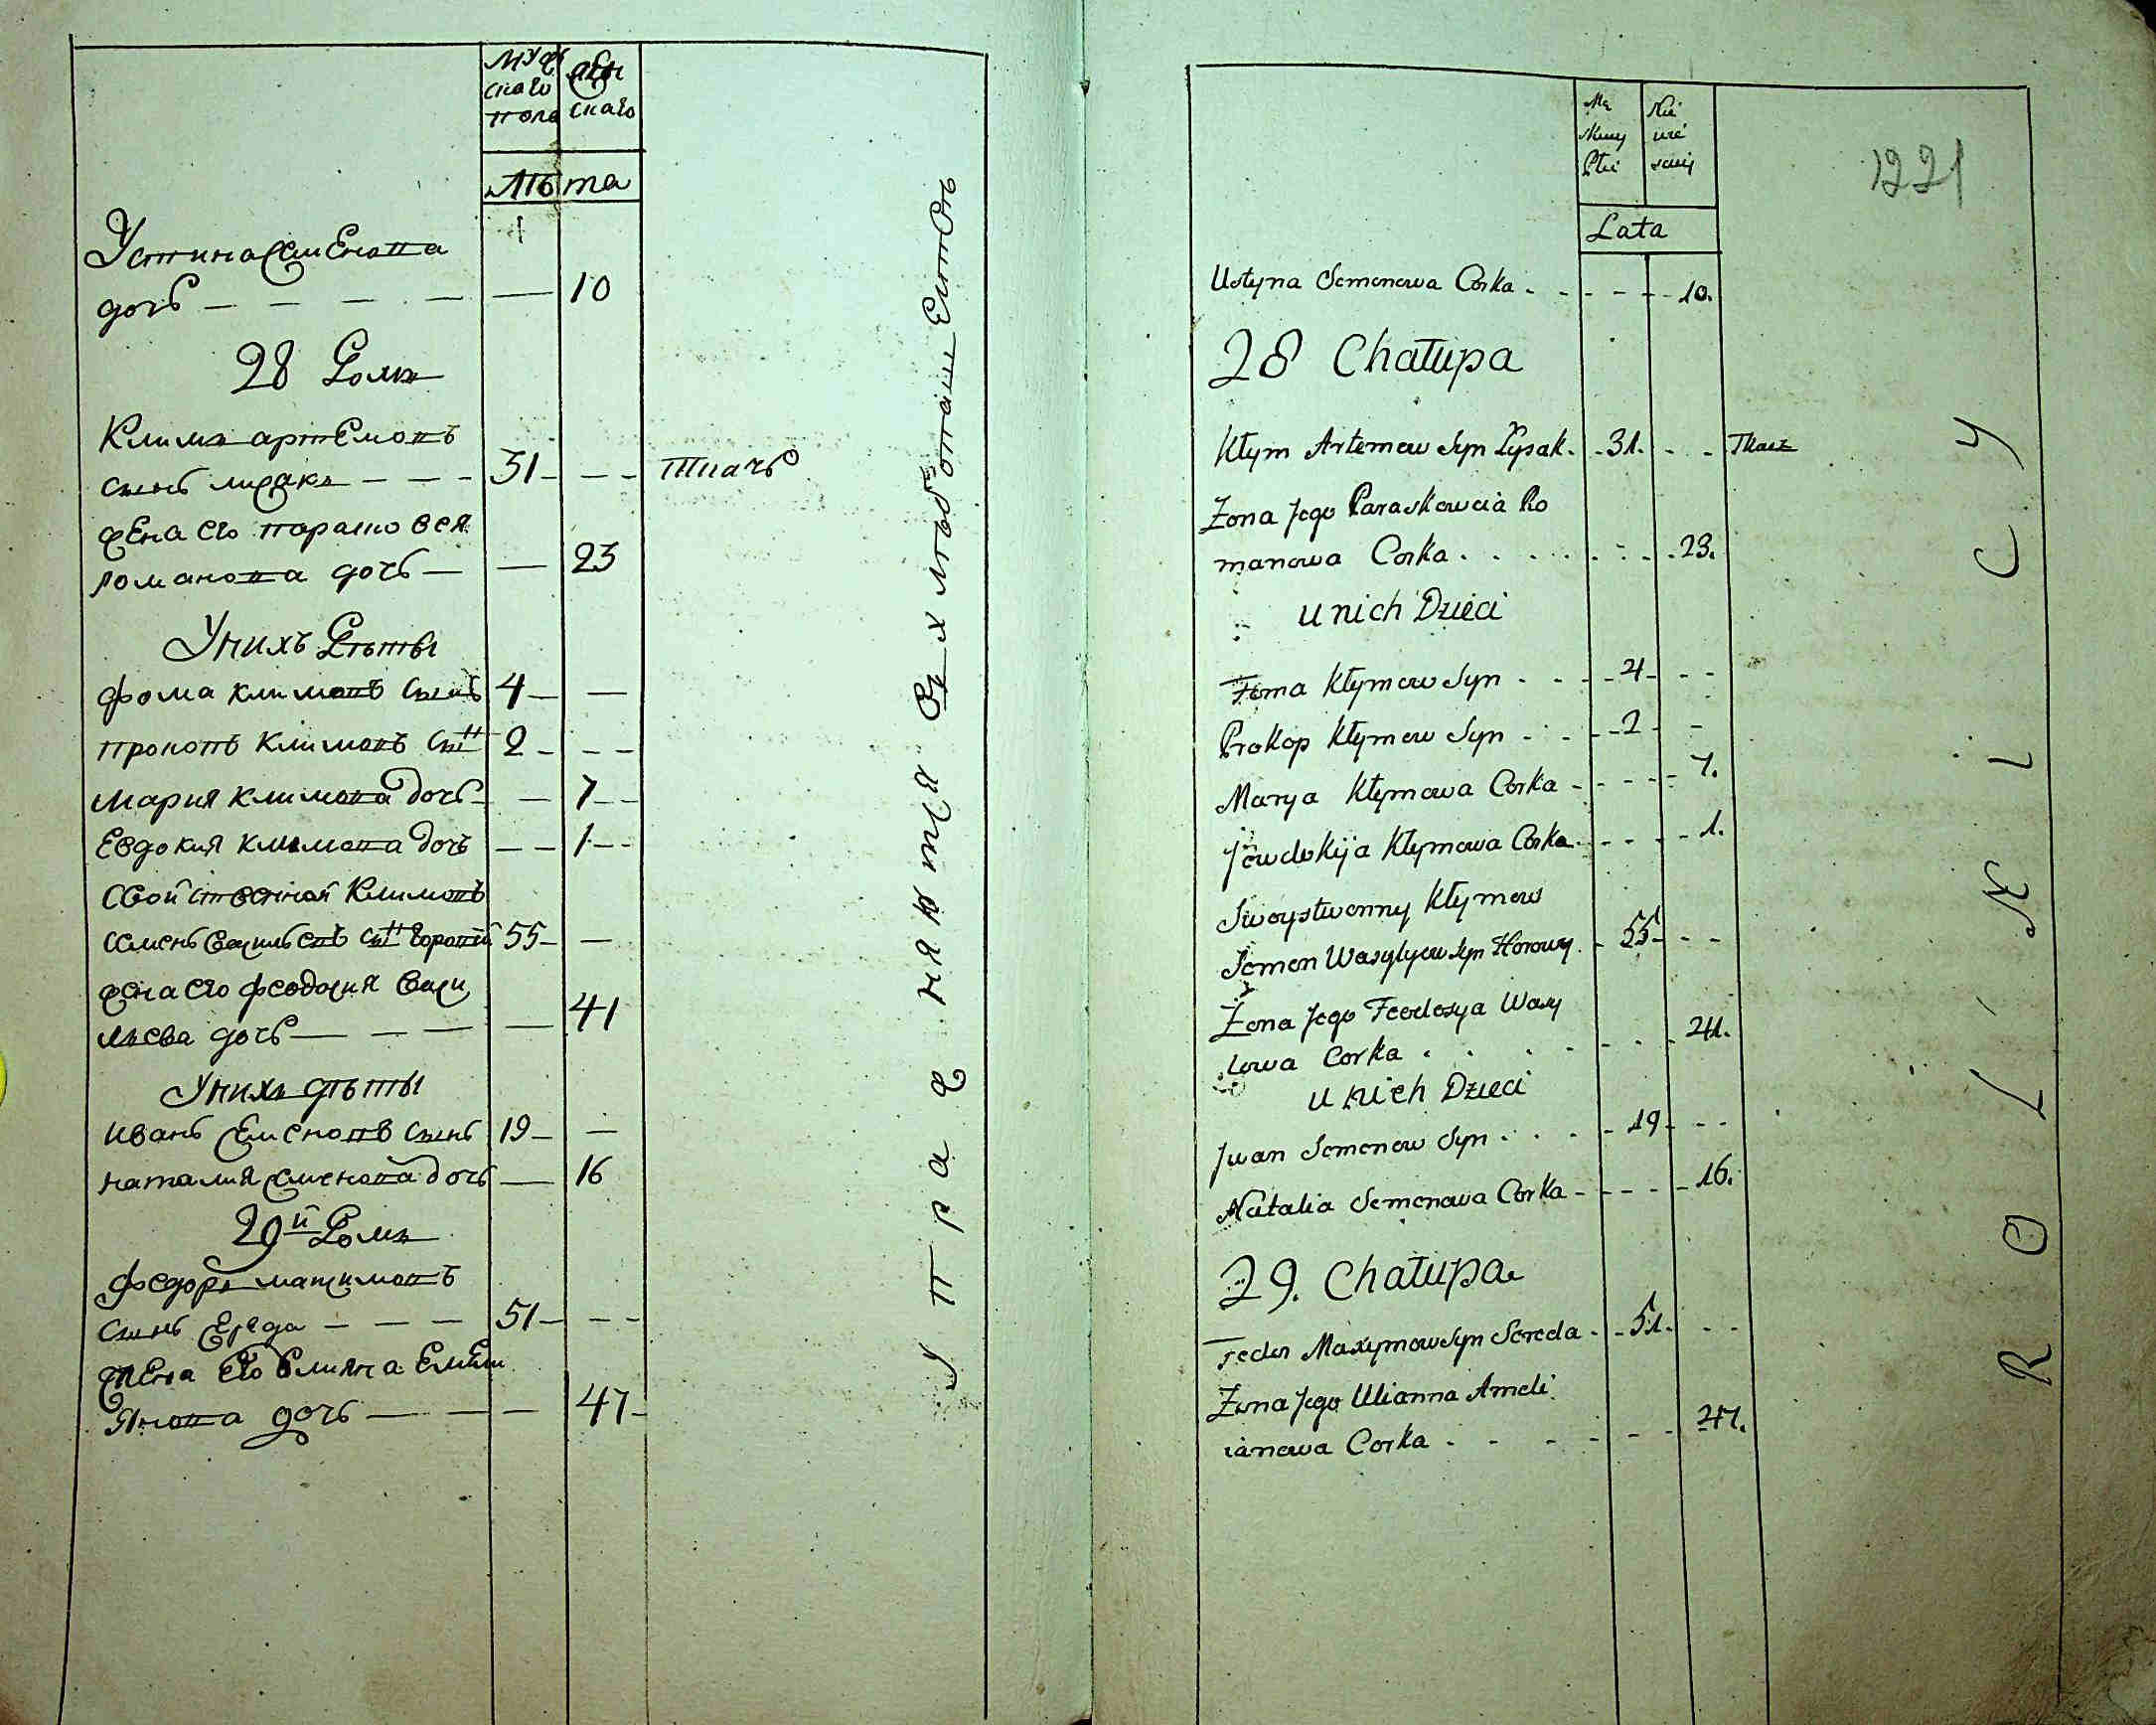 Муж
скаго
пола
Жен
скаго
Лѣта
Устина Семенова
дочь — — — — — 10
28 Домъ
Климъ артемовъ
сынъ лисакъ — — — 31 — — — Ткачъ
жена его парасковея
романова дочь — — 23
Унихъ Дѣты
фома климовъ сынъ 4 — —
прокопъ климовъ сынъ 2 — — —
мария климова дочь — — 7 — —
Евдокия климова дочь — — 1 — —
Свойственной Климовъ
семенъ васильевъ сынъ 55 — —
жена его феодосия васи
льева дочь — — — — — 41
Унихъ дѣты
иванъ Семеновъ сынъ 19 — —
наталия Семенова дочь — 16
29й Домъ
федоръ максимовъ
сынъ Середа — — — 51 — — —
жена его Улияна Емели
янова дочь — — — 47 —
Упражняются въ хлѣбопашествѣ
Mę
skiey
Płci
Nie
wie
sciey
Lata
1221
Ustyna Semenowa Corka - - - - - - 10.
28 Chałupa
Kłym Artemow Syn Łysak. - 31. - - Tkacz
Żona Jego Paraskoweia Ro
manowa Corka . . . . . . . . 23.
u nich Dzieci
Foma Kłymow Syn - - - 4 - - -
Prokop Kłymow Syn - - - 2 - -
Marya Kłymowa Corka - - - - - 7.
Jewdokija Kłymowa Corka - - - - 1.
Swoystwenny Kłymow
Semen Wasylyew Syn Horowy - 55 - - -
Żona Jego Feodosya Wasy
lowa Corka . . . - - - - 41.
u nich Dzieci
Jwan Semenow Syn . . . - 19 - - -
Natalia Semenowa Corka - - - - - 16.
29. Chałupa
Fedor Maxymow Syn Sereda - - 51. - -
Żona Jego Ulianna Ameli
ianowa Corka . - - - - - 47.
ROLNICY